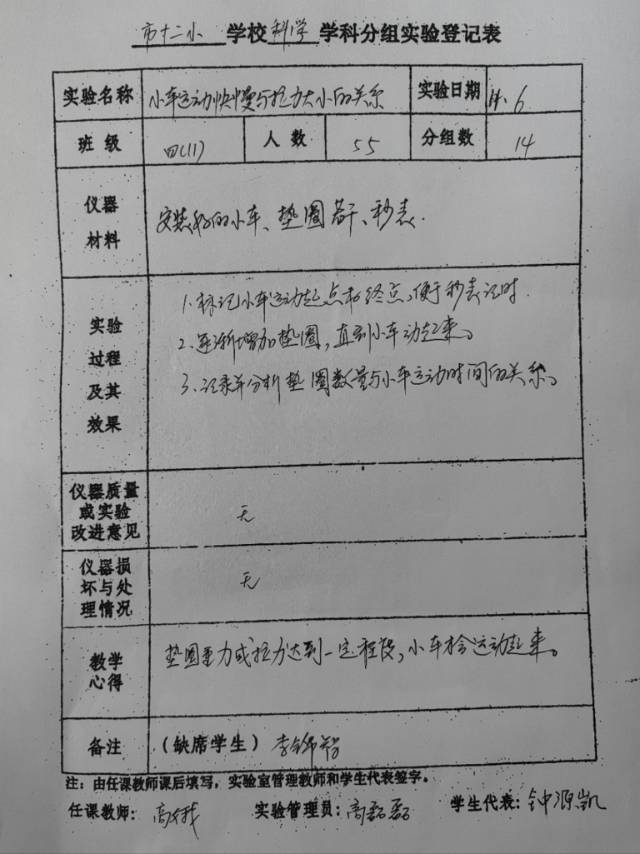 市十二小 学校 科学 学科分组实验登记表
实验名称 小车运动快慢与拉力大小的关系 实验日期 11.6
班级 四(1) 人数 55 分组数 14
仪器材料 安装好的小车、垫圈若干、秒表.
实验过程及其效果
1.标记小车运动起点和终点,便于秒表记时.
2.逐渐增加垫圈,直到小车动起来。
3.记录并分析垫圈数量与小车运动时间的关系。
仪器质量或实验改进意见 无
仪器损坏与处理情况 无
教学心得 垫圈重力或拉力达到一定程度,小车才会运动起来。
备注 (缺席学生) 李
注:由任课教师课后填写,实验室管理教师和学生代表签字。
任课教师: 高 实验管理员: 高磊磊 学生代表: 钟源凯